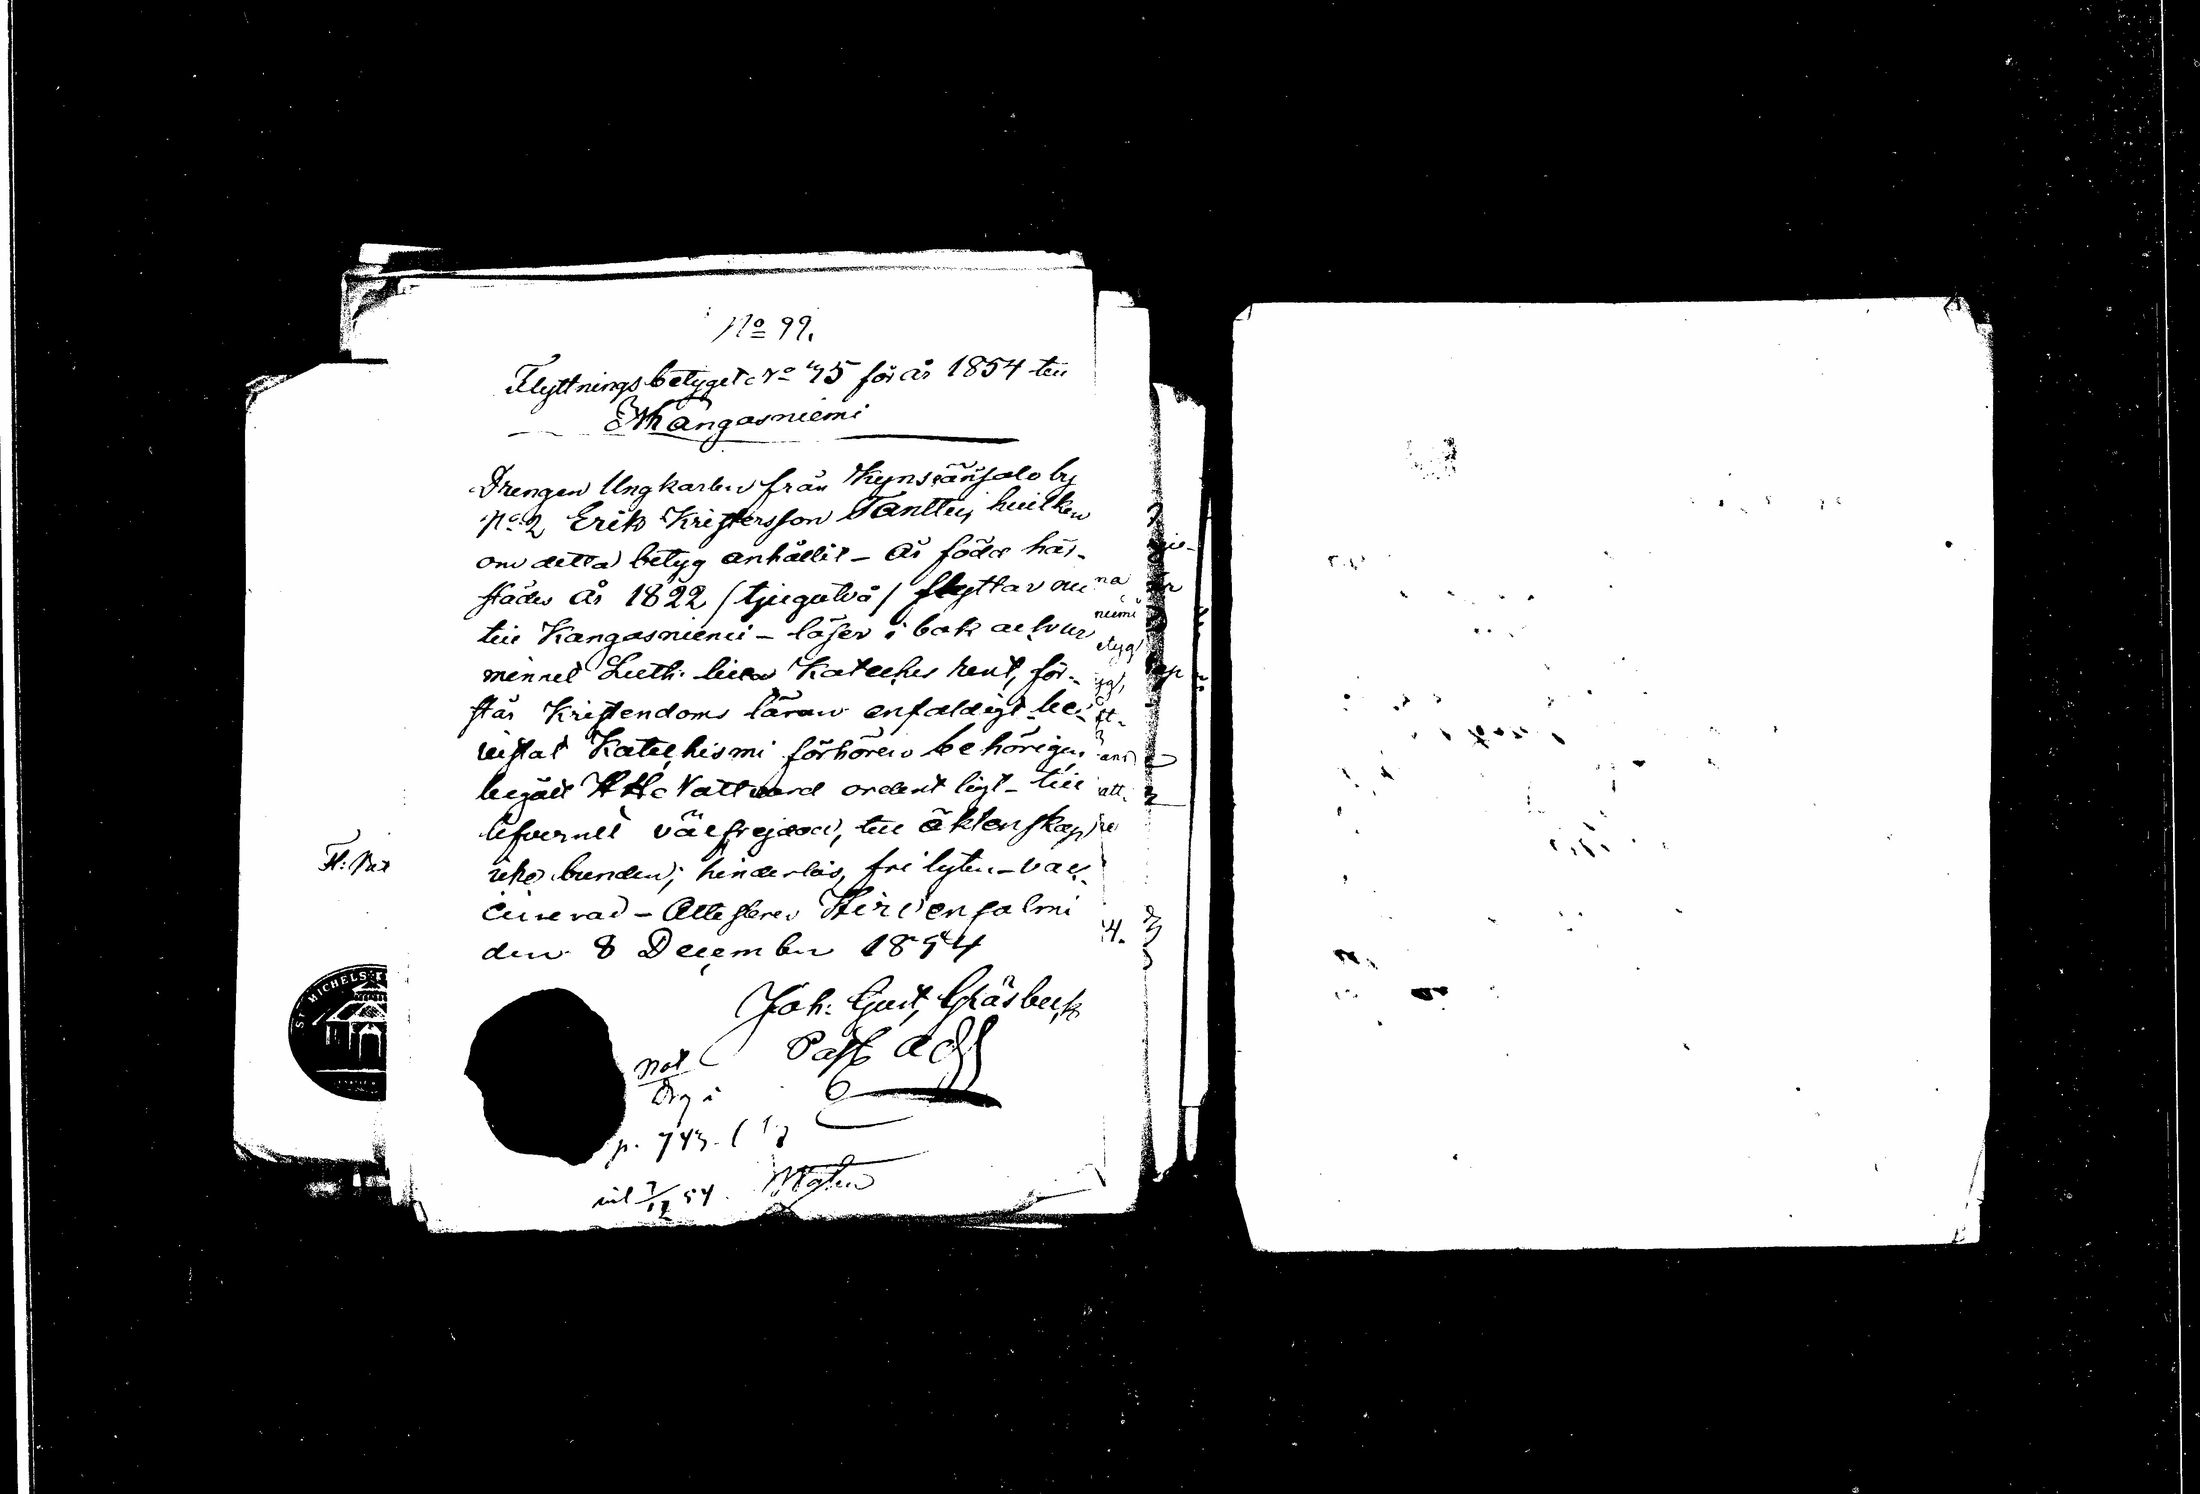 No 99.
Flyttningsbetyget No 45 för år 1854 till
Kangasniemi
Drengen Ungkarlen från Kynsiänsalo by
No 2 Erik Kristersson Tanttu, hvilken
om detta betyg anhållit – är född här-
städes år 1822 /tjugutvå/ flyttar nu
till Kangasniemi – läser i bok och ur
minnet Luth. lilla Kateches rent, för-
står Kristendoms läran enfaldigt be-
vistat Katechismi förhören behörigen
begått H H Nattvard ordentligt – till
lefvernet välfrejdad, till äktenskap
icke bunden; hinderlös, fri lyten – vac-
cinerad – Attesterar Hirvensalmi
den 8 December 1854
Joh: Gust, Gråsbeck
Past adj
Not
Drg i
p. 743.
inl 7/12 54.
na
niemi
etyg
att.
4.
ST MICHELS K